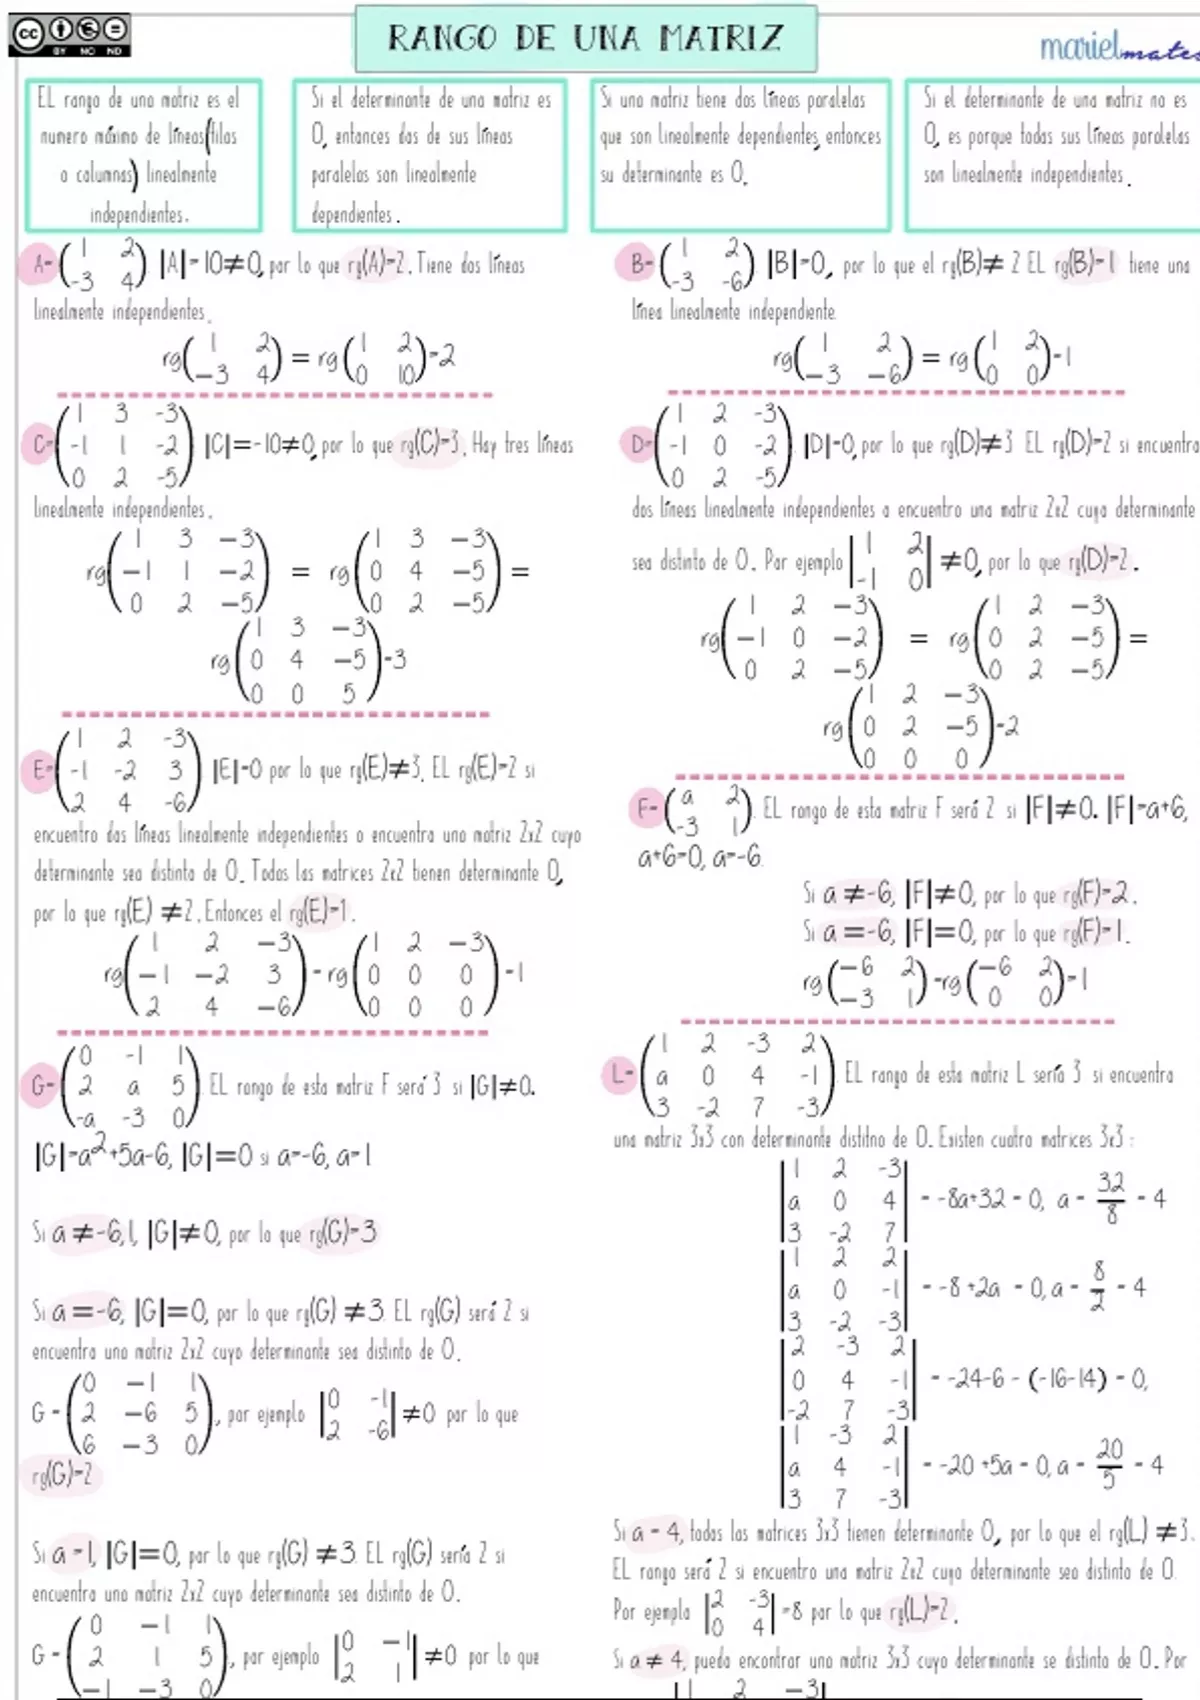 cc BY NC ND
RANGO DE UNA MATRIZ
marielmates
EL rango de una matriz es el
numero máximo de líneas(filas
o columnas) linealmente
independientes.
Si el determinante de una matriz es
0, entonces dos de sus líneas
paralelas son linealmente
dependientes.
Si una matriz tiene dos líneas paralelas
que son linealmente dependientes, entonces
su determinante es 0.
Si el determinante de una matriz no es
0, es porque todas sus líneas paralelas
son linealmente independientes.
A= (1 2
-3 4) |A|=10≠0, por lo que rg(A)=2. Tiene dos líneas
linealmente independientes.
rg(1 2
-3 4) = rg(1 2
0 10)=2
B= (1 2
-3 -6) |B|=0, por lo que el rg(B)≠ 2 EL rg(B)=1 tiene una
línea linealmente independiente.
rg(1 2
-3 -6) = rg(1 2
0 0)=1
C= (1 3 -3
-1 1 -2
0 2 -5) |C|=-10≠0, por lo que rg(C)=3. Hay tres líneas
linealmente independientes.
rg(1 3 -3
-1 1 -2
0 2 -5) = rg(1 3 -3
0 4 -5
0 2 -5) =
rg(1 3 -3
0 4 -5
0 0 5)=3
D= (1 2 -3
-1 0 -2
0 2 -5) |D|=0, por lo que rg(D)≠3 EL rg(D)=2 si encuentro
dos líneas linealmente independientes o encuentro una matriz 2x2 cuya determinante
sea distinto de 0. Por ejemplo |1 2
-1 0| ≠0, por lo que rg(D)=2.
rg(1 2 -3
-1 0 -2
0 2 -5) = rg(1 2 -3
0 2 -5
0 2 -5) =
rg(1 2 -3
0 2 -5
0 0 0)=2
E= (1 2 -3
-1 -2 3
2 4 -6) |E|=0 por lo que rg(E)≠3. EL rg(E)=2 si
encuentro dos líneas linealmente independientes o encuentra una matriz 2x2 cuyo
determinante sea distinto de 0. Todas las matrices 2x2 tienen determinante 0,
por lo que rg(E) ≠2. Entonces el rg(E)=1.
rg(1 2 -3
-1 -2 3
2 4 -6)=rg(1 2 -3
0 0 0
0 0 0)=1
F= (a 2
-3 1). EL rango de esta matriz F será 2 si |F|≠0. |F|=a+6,
a+6=0, a=-6.
Si a ≠-6, |F|≠0, por lo que rg(F)=2.
Si a =-6, |F|=0, por lo que rg(F)=1.
rg(-6 2
-3 1)=rg(-6 2
0 0)=1
G= (0 -1 1
2 a 5
-a -3 0). EL rango de esta matriz F será 3 si |G|≠0.
|G|=a²+5a-6, |G|=0 si a=-6, a=1
Si a ≠-6,1, |G|≠0, por lo que rg(G)=3
Si a =-6, |G|=0, por lo que rg(G) ≠3. EL rg(G) será 2 si
encuentro una matriz 2x2 cuyo determinante sea distinto de 0.
G=(0 -1 1
2 -6 5
6 -3 0), por ejemplo |0 -1
2 -6| ≠0 por lo que
rg(G)=2
Si a =1, |G|=0, por lo que rg(G) ≠3. EL rg(G) sería 2 si
encuentro una matriz 2x2 cuyo determinante sea distinto de 0.
G=(0 -1 1
2 1 5
-1 -3 0), por ejemplo |0 -1
2 1| ≠0 por lo que
L= (1 2 -3 2
a 0 4 -1
3 -2 7 -3). EL rango de esta matriz L sería 3 si encuentra
una matriz 3x3 con determinante distitno de 0. Existen cuatro matrices 3x3 :
|1 2 -3
a 0 4
3 -2 7| = -8a+32 = 0, a = 32/8 = 4
|1 2 2
a 0 -1
3 -2 -3| = -8 +2a = 0, a = 8/2 = 4
|2 -3 2
0 4 -1
-2 7 -3| = -24-6 - (-16-14) = 0,
|1 -3 2
a 4 -1
3 7 -3| = -20 +5a = 0, a = 20/5 = 4
Si a = 4, todas las matrices 3x3 tienen determinante 0, por lo que el rg(L) ≠3.
EL rango será 2 si encuentro una matriz 2x2 cuyo determinante sea distinto de 0.
Por ejemplo |2 -3
0 4| =8 por lo que rg(L)=2.
Si a ≠ 4, puedo encontrar una matriz 3x3 cuyo determinante se distinto de 0. Por
1 2 -3